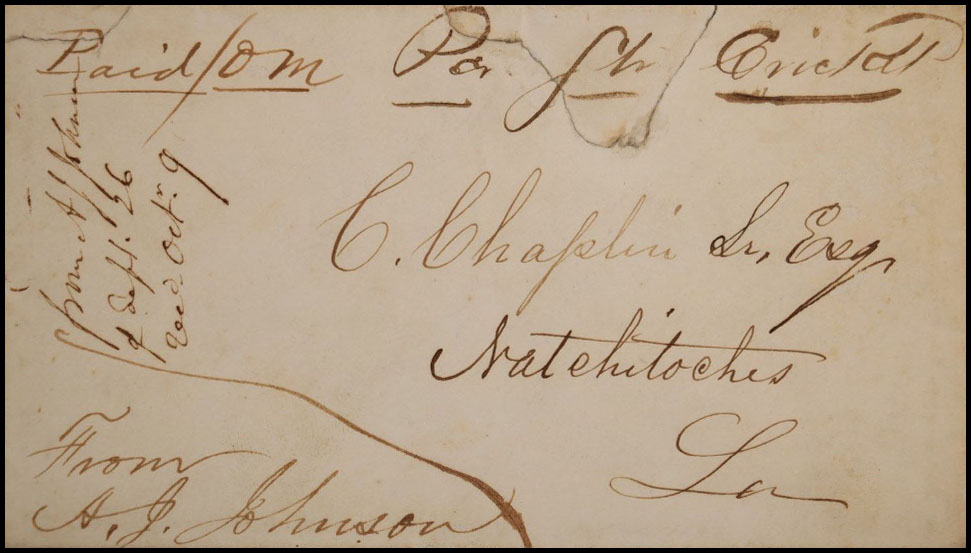 Paid/OM Par Str
C. Chaplin Sr, Esq
Natchitoches
La
from A J Johnson
of Sept. 26
recd. Octr. 9
From
A. J. Johnson